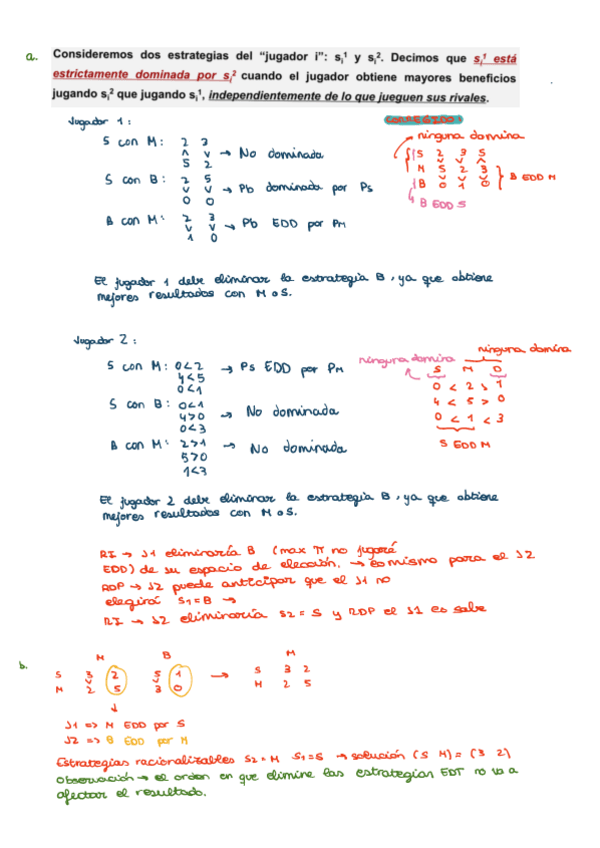 a. Consideremos dos estrategias del “jugador i”: si1 y si2. Decimos que si1 está
estrictamente dominada por si2 cuando el jugador obtiene mayores beneficios
jugando si2 que jugando si1, independientemente de lo que jueguen sus rivales.
Jugador 1:
S con M: 2 3
∧ ∨ → No dominada
5 2
S con B: 2 5
∨ ∨ → Pb dominada por Ps
0 0
B con M: 2 3
∨ ∨ → Pb EDD por PM
1 0
CORREGIDO:
ninguna domina
S 2 3 5
∨ ∨ ∧
M 5 2 3
∨ ∨ ∨
B 0 1 0
B EDD M
B EDD S
El jugador 1 debe eliminar la estrategia B, ya que obtiene
mejores resultados con M o S.
Jugador 2:
S con M: 0<2 → Ps EDD por PM
4<5
0<1
S con B: 0<1
4>0 → No dominada
0<3
B con M: 2>1 → No dominada
5>0
1<3
ninguna domina
ninguna domina
S M D
0 < 2 > 1
4 < 5 > 0
0 < 1 < 3
S EDD M
El jugador 2 debe eliminar la estrategia B, ya que obtiene
mejores resultados con M o S.
RI → J1 eliminaría B (max π no jugará
EDD) de su espacio de elección. → es mismo para el J2
RDP → J2 puede anticipar que el J1 no
elegirá S1=B →
RI → J2 eliminaría S2=S y RDP el J1 es sabe
b.
M B
S 3 2 5 1
∨ ∨
M 2 5 3 0
→
M
S 3 2
M 2 5
J1 => M EDD por S
J2 => B EDD por M
Estrategias racionalizables S2=M S1=S → solución (S M)=(3 2)
Observación → el orden en que elimine las estrategias EDT no va a
afectar el resultado.